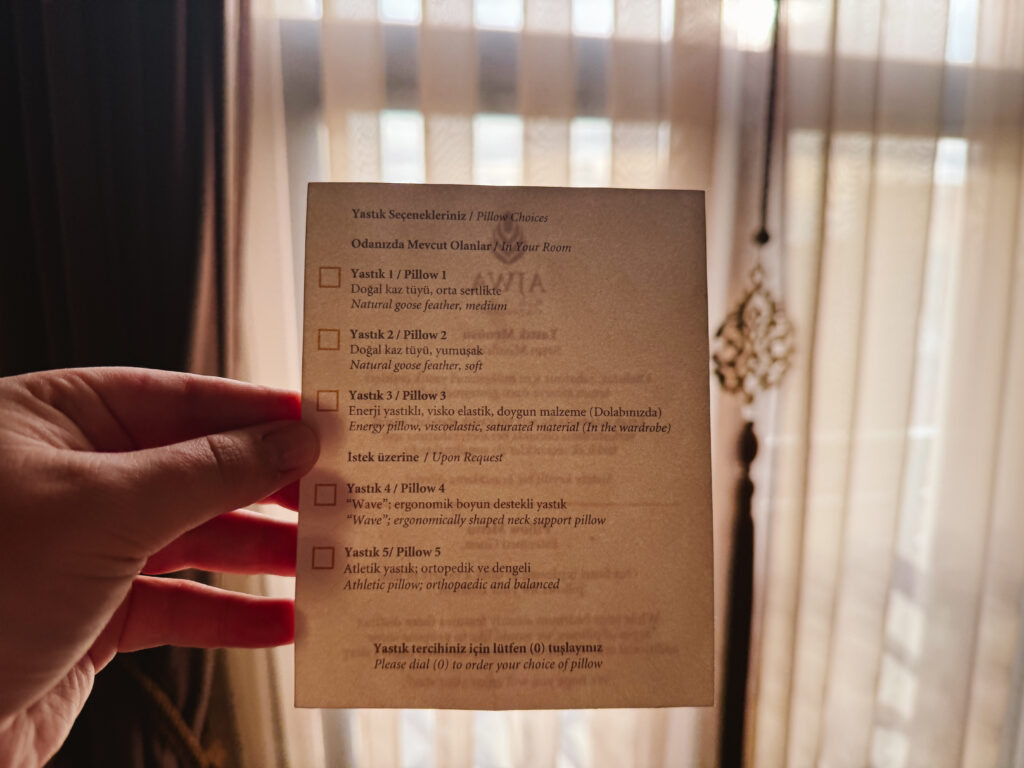 Yastık Seçenekleriniz / Pillow Choices
Odanızda Mevcut Olanlar / In Your Room
Yastık 1 / Pillow 1
Doğal kaz tüyü, orta sertlikte
Natural goose feather, medium
Yastık 2 / Pillow 2
Doğal kaz tüyü, yumuşak
Natural goose feather, soft
Yastık 3 / Pillow 3
Enerji yastıklı, visko elastik, doygun malzeme (Dolabınızda)
Energy pillow, viscoelastic, saturated material (In the wardrobe)
İstek üzerine / Upon Request
Yastık 4 / Pillow 4
“Wave”; ergonomik boyun destekli yastık
“Wave”; ergonomically shaped neck support pillow
Yastık 5/ Pillow 5
Atletik yastık; ortopedik ve dengeli
Athletic pillow; orthopaedic and balanced
Yastık tercihiniz için lütfen (0) tuşlayınız
Please dial (0) to order your choice of pillow
AJWA